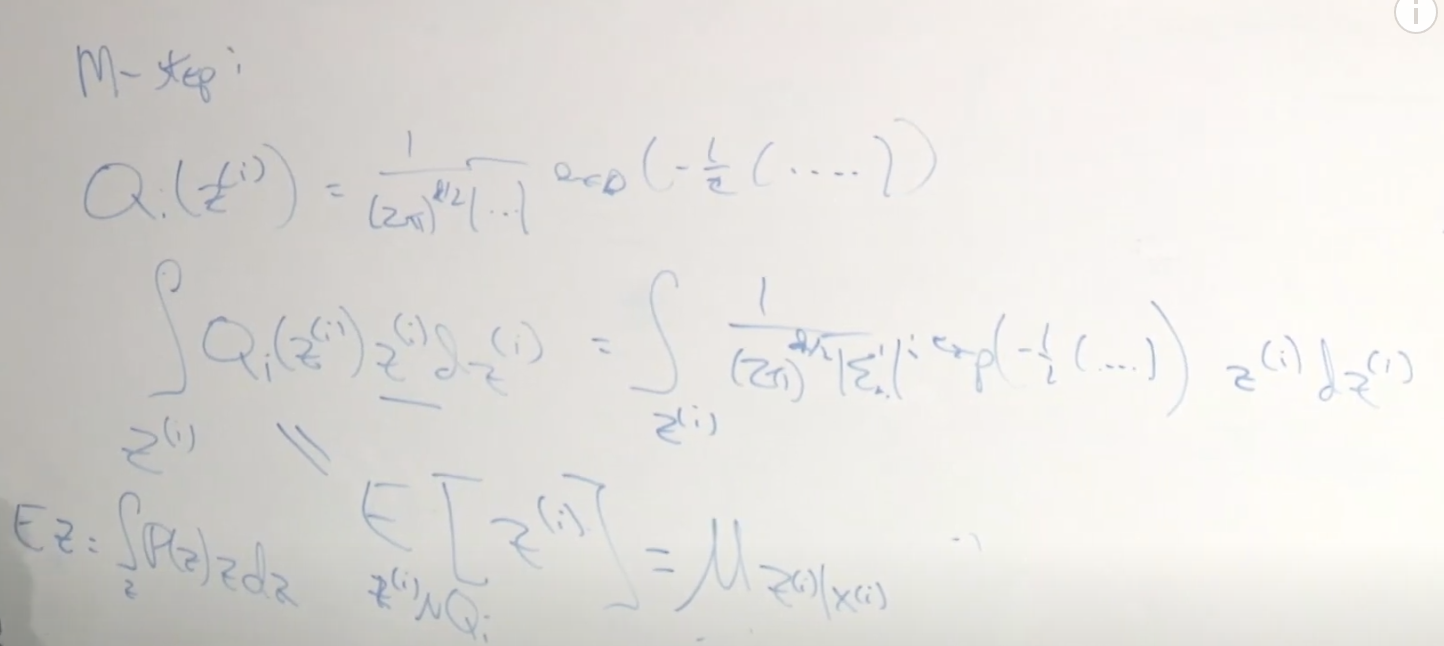 M-step:
Q_i(z^(i)) = 1/((2π)^{d/2}|...|) exp(-1/2(....))
∫_{z^(i)} Q_i(z^(i)) z^(i) dz^(i) = ∫_{z^(i)} 1/((2π)^{d/2}|Σ|) exp(-1/2(...)) z^(i) dz^(i)
Ez = ∫_z P(z) z dz E_{z^(i)~Q_i}[z^(i)] = μ_{z^(i)|x^(i)}